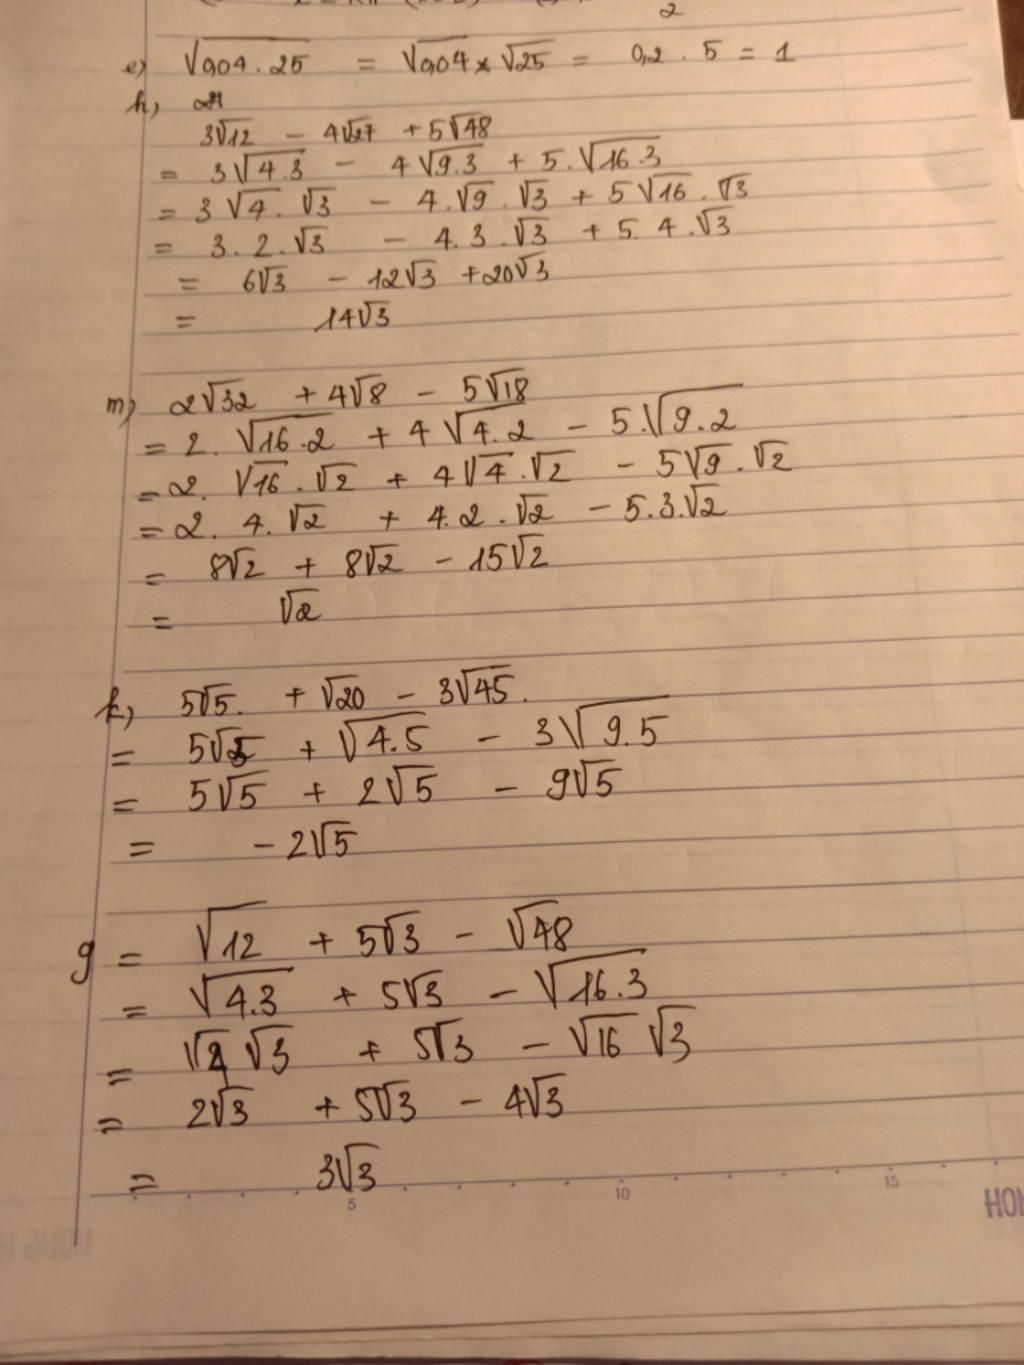 2
e) √0,04.25 = √0,04 × √25 = 0,2 . 5 = 1
h,
3√12 - 4√27 + 5√48
= 3√4.3 - 4√9.3 + 5.√16.3
= 3√4.√3 - 4.√9.√3 + 5√16.√3
= 3.2.√3 - 4.3.√3 + 5.4.√3
= 6√3 - 12√3 + 20√3
= 14√3
m) 2√32 + 4√8 - 5√18
= 2.√16.2 + 4√4.2 - 5.√9.2
= 2.√16.√2 + 4√4.√2 - 5√9.√2
= 2.4.√2 + 4.2.√2 - 5.3.√2
= 8√2 + 8√2 - 15√2
= √2
k, 5√5. + √20 - 3√45.
= 5√5 + √4.5 - 3√9.5
= 5√5 + 2√5 - 9√5
= -2√5
g = √12 + 5√3 - √48
= √4.3 + 5√3 - √16.3
= √4 √3 + 5√3 - √16 √3
= 2√3 + 5√3 - 4√3
= 3√3
5 10 15
HON